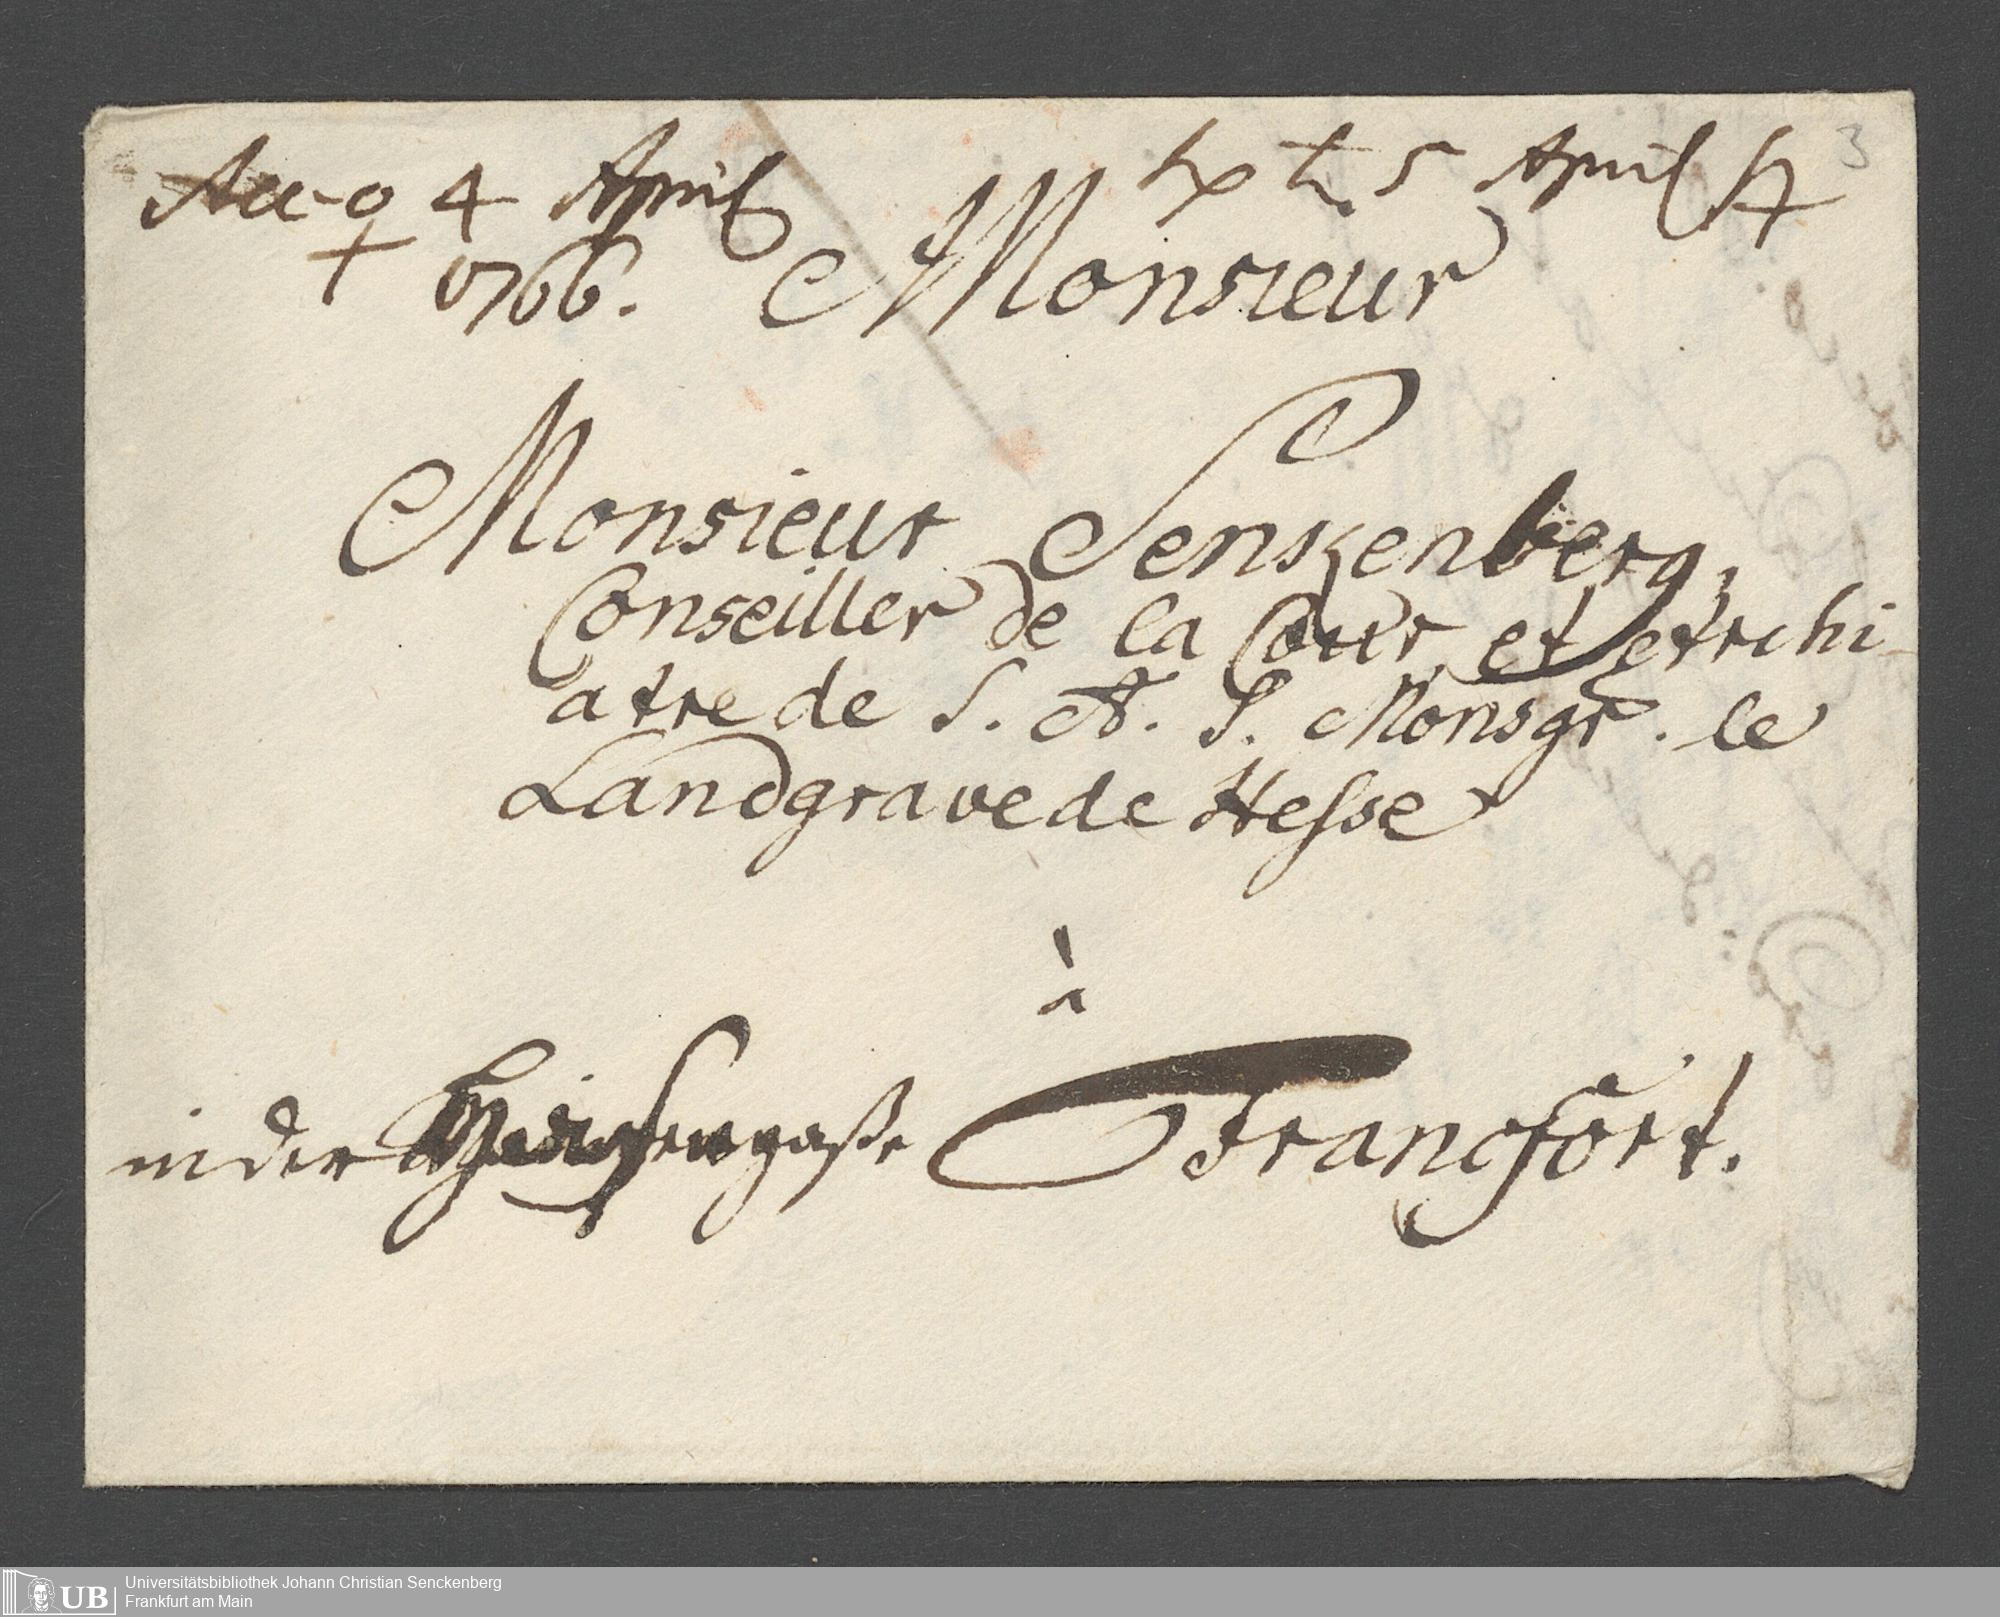 Acc. ♀ 4 April
1766.
♄ 5 April
3
Monsieur
Monsieur Senkenberg,
Conseiller de la Cour, et Archi-
atre de S. A. S. Monsgr. le
Landgrave de Hesse
à
in der gaße Francfort.
UB
Universitätsbibliothek Johann Christian Senckenberg
Frankfurt am Main